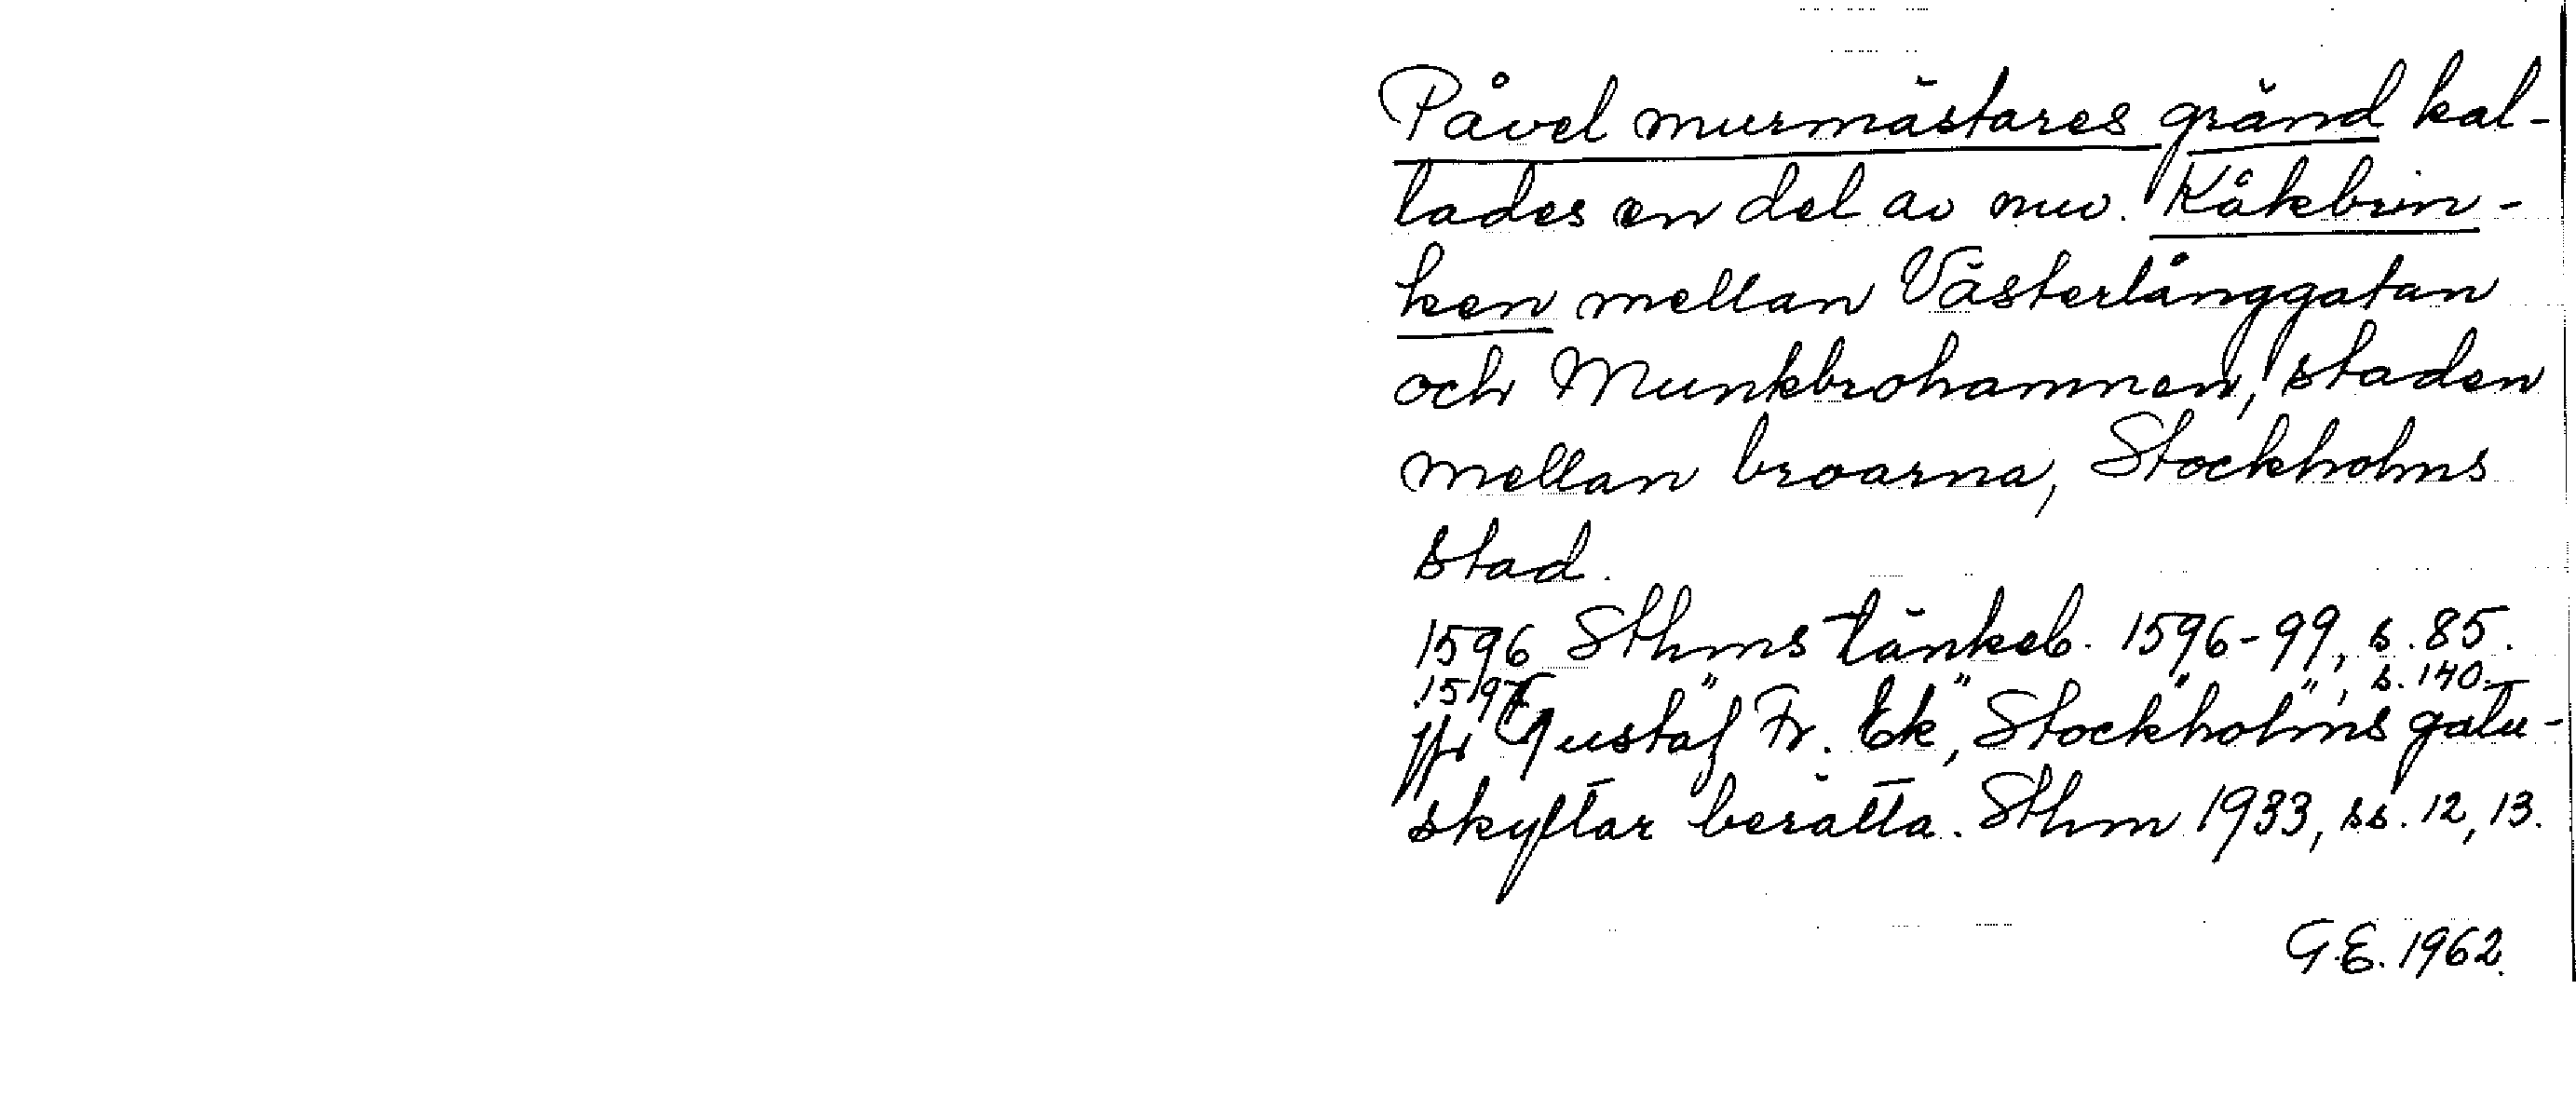 Påvel murmästares gränd kal-
lades en del av nuv. Kåkbrin-
ken mellan Västerlånggatan
och Munkbrohamnen, staden
mellan broarna, Stockholms
stad.
1596 Sthms tänkeb. 1596-99, s. 85.
1597 " " " ", s. 140.
jfr Gustaf Fr. Ek, Stockholms gatu-
skyltar berätta. Sthm 1933, ss. 12, 13.
G.E. 1962.